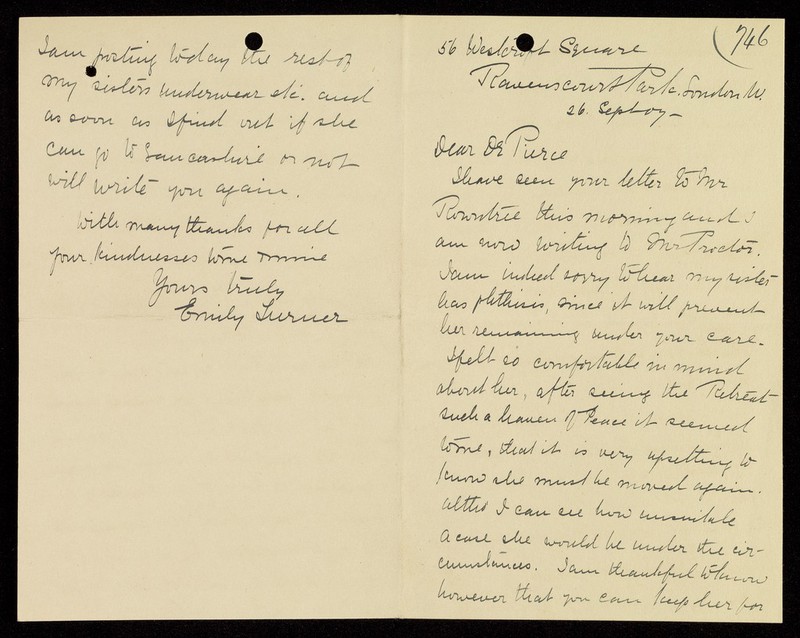 746
56 Westcroft Square
Ravenscourt Park. London W.
26. Sept 07 –
Dear Dr Pierce
I have seen your letter to Mr
Rowntree this morning and I
am now writing to Mr Proctor.
I am indeed sorry to hear my sister
has phthisis, since it will prevent
her remaining under your care.
I felt so comfortable in mind
about her, after seeing the Retreat
such a haven of Peace it seemed
to me, that it is very upsetting to
know she must be moved again.
altho I can see how unsuitable
a case she would be under the cir-
cumstances. I am thankful to know
however that you can keep her for
I am posting today the rest of
my sisters underwear etc. and
as soon as I find out if she
can go to Lancashire or not
will write you again.
With many thanks for all
your kindnesses to me & mine
Yours truly
Emily Turner